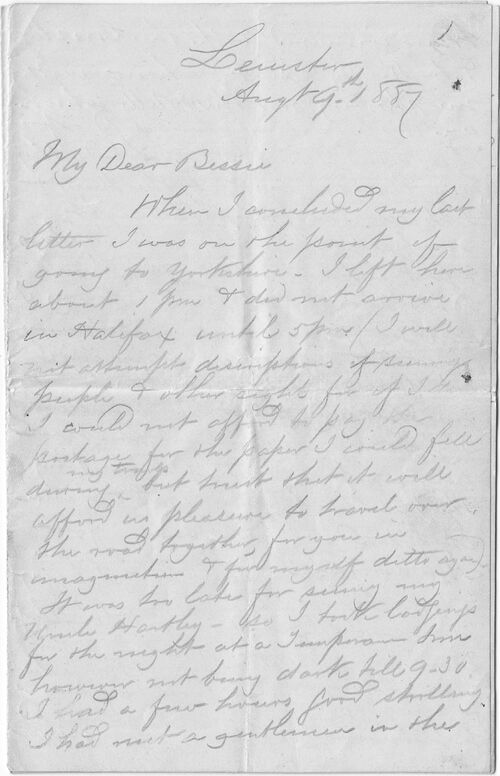 1
Leicester
Augt 9th 1887
My Dear Bessie
When I concluded my last
letter I was on the point of
going to Yorkshire - I left here
about 1 pm & did not arrive
in Halifax until 5 pm (I will
not attempt descriptions of scenery
people & other sights for if I did
I could not afford to pay the
postage for the paper I would fill
during my trips but trust that it will
afford us pleasure to travel over
the road together, for you in
imagination & for myself ditto again).
It was too late for seeing my
Uncle Hartley - so I took lodgings
for the night at a Temperance Inn
however not being dark till 9-30
I had a few hours good strolling
I had met a gentleman in the